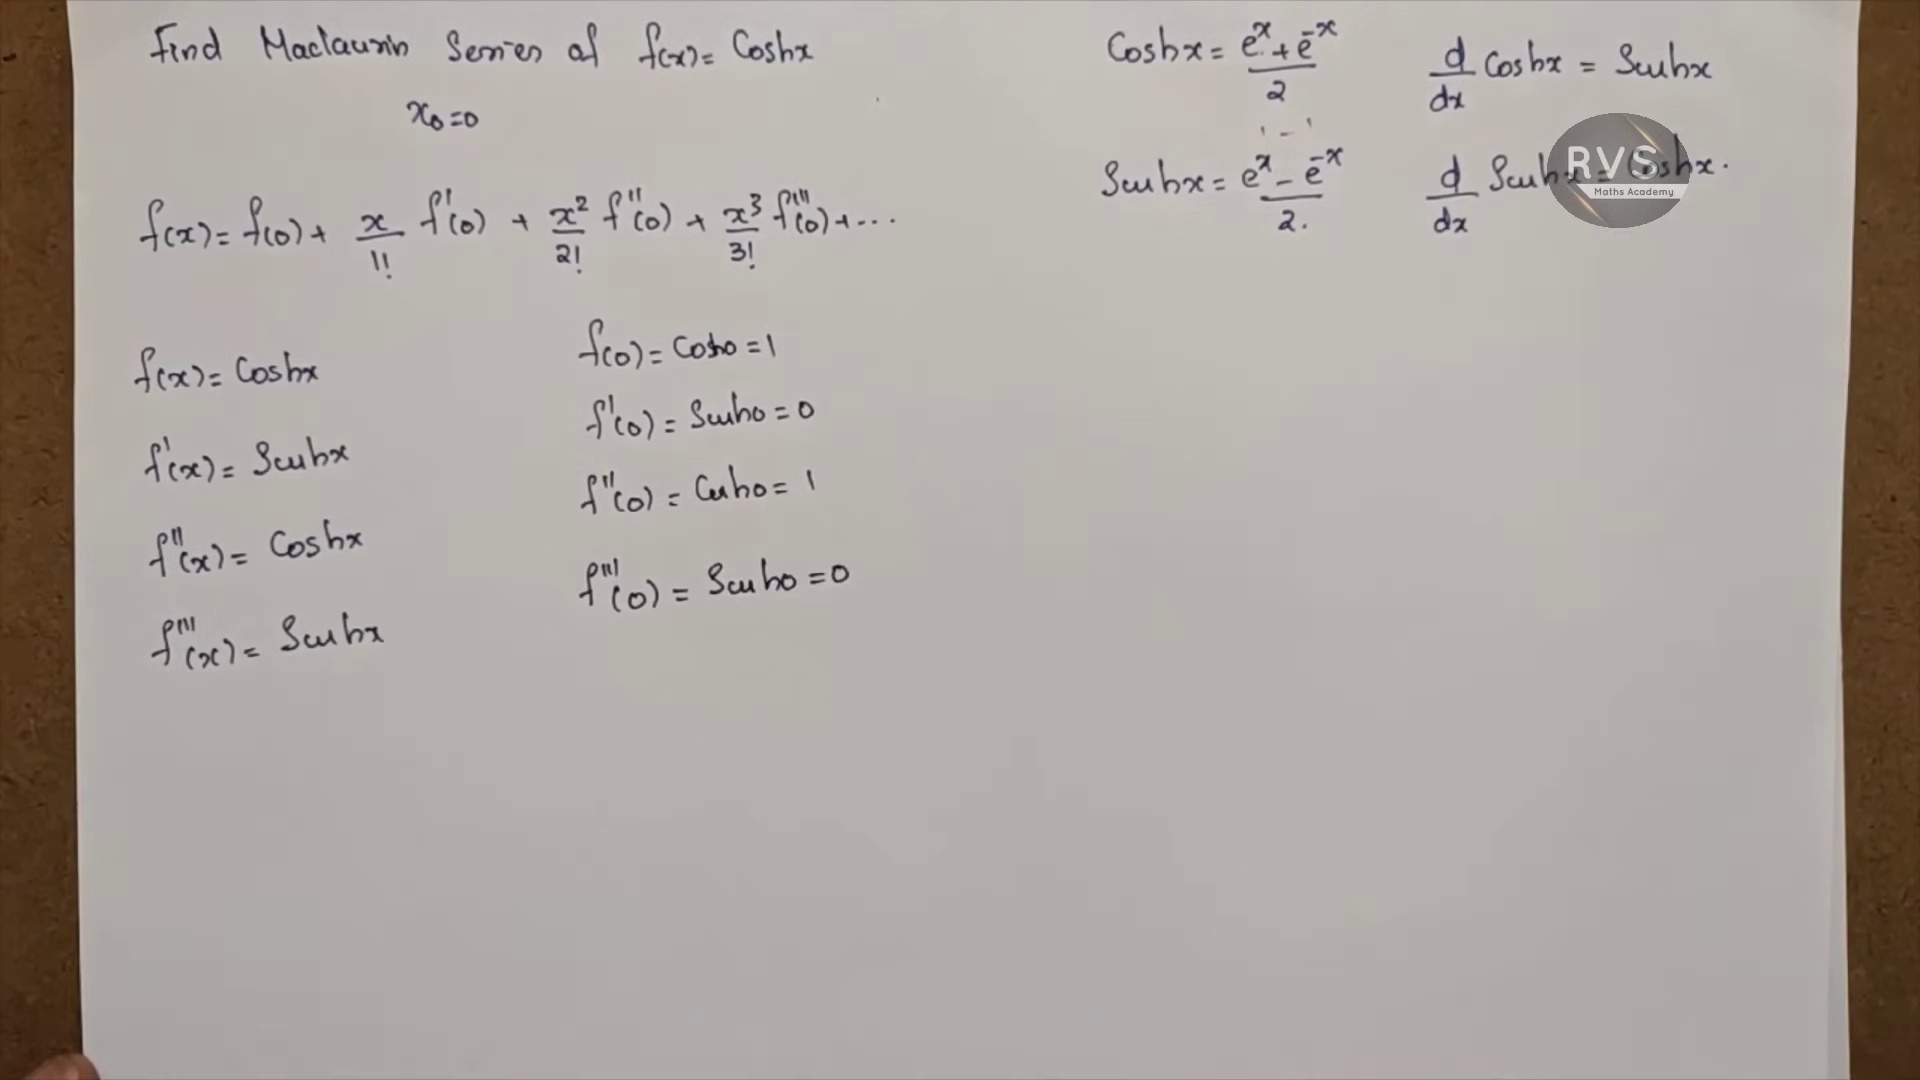 Find Maclaurin Series of f(x) = Coshx
x₀=0
f(x) = f(0) + x/1! f'(0) + x²/2! f''(0) + x³/3! f'''(0) + ...
f(x) = Coshx
f'(x) = Sinhx
f''(x) = Coshx
f'''(x) = Sinhx
f(0) = Cosh0 = 1
f'(0) = Sinh0 = 0
f''(0) = Cosh0 = 1
f'''(0) = Sinh0 = 0
Coshx = (eˣ + e⁻ˣ)/2
Sinhx = (eˣ - e⁻ˣ)/2.
d/dx Coshx = Sinhx
d/dx Sinhx = Coshx.
RVS
Maths Academy